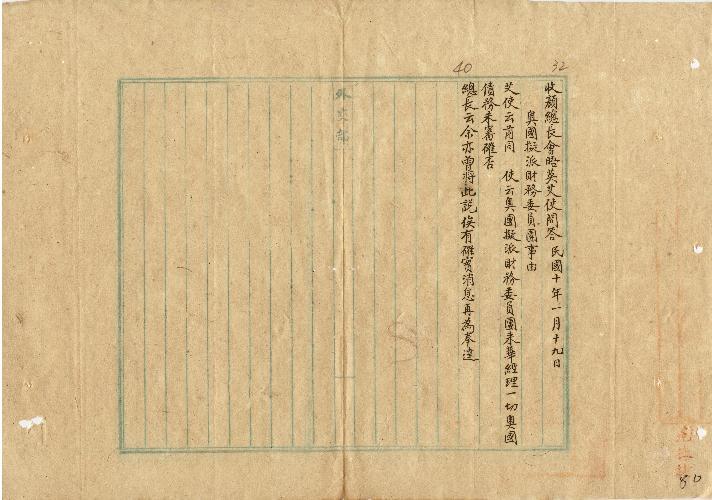 32
收顏總長會晤英艾使問答 民國十年一月十九日
奧國擬派財務委員團事由
艾使云前同 使云奧國擬派財務委員團來華經理一切奧國
債務未審確否
40
總長云余亦曾將此說俟有確實消息再為奉達
外交部
50